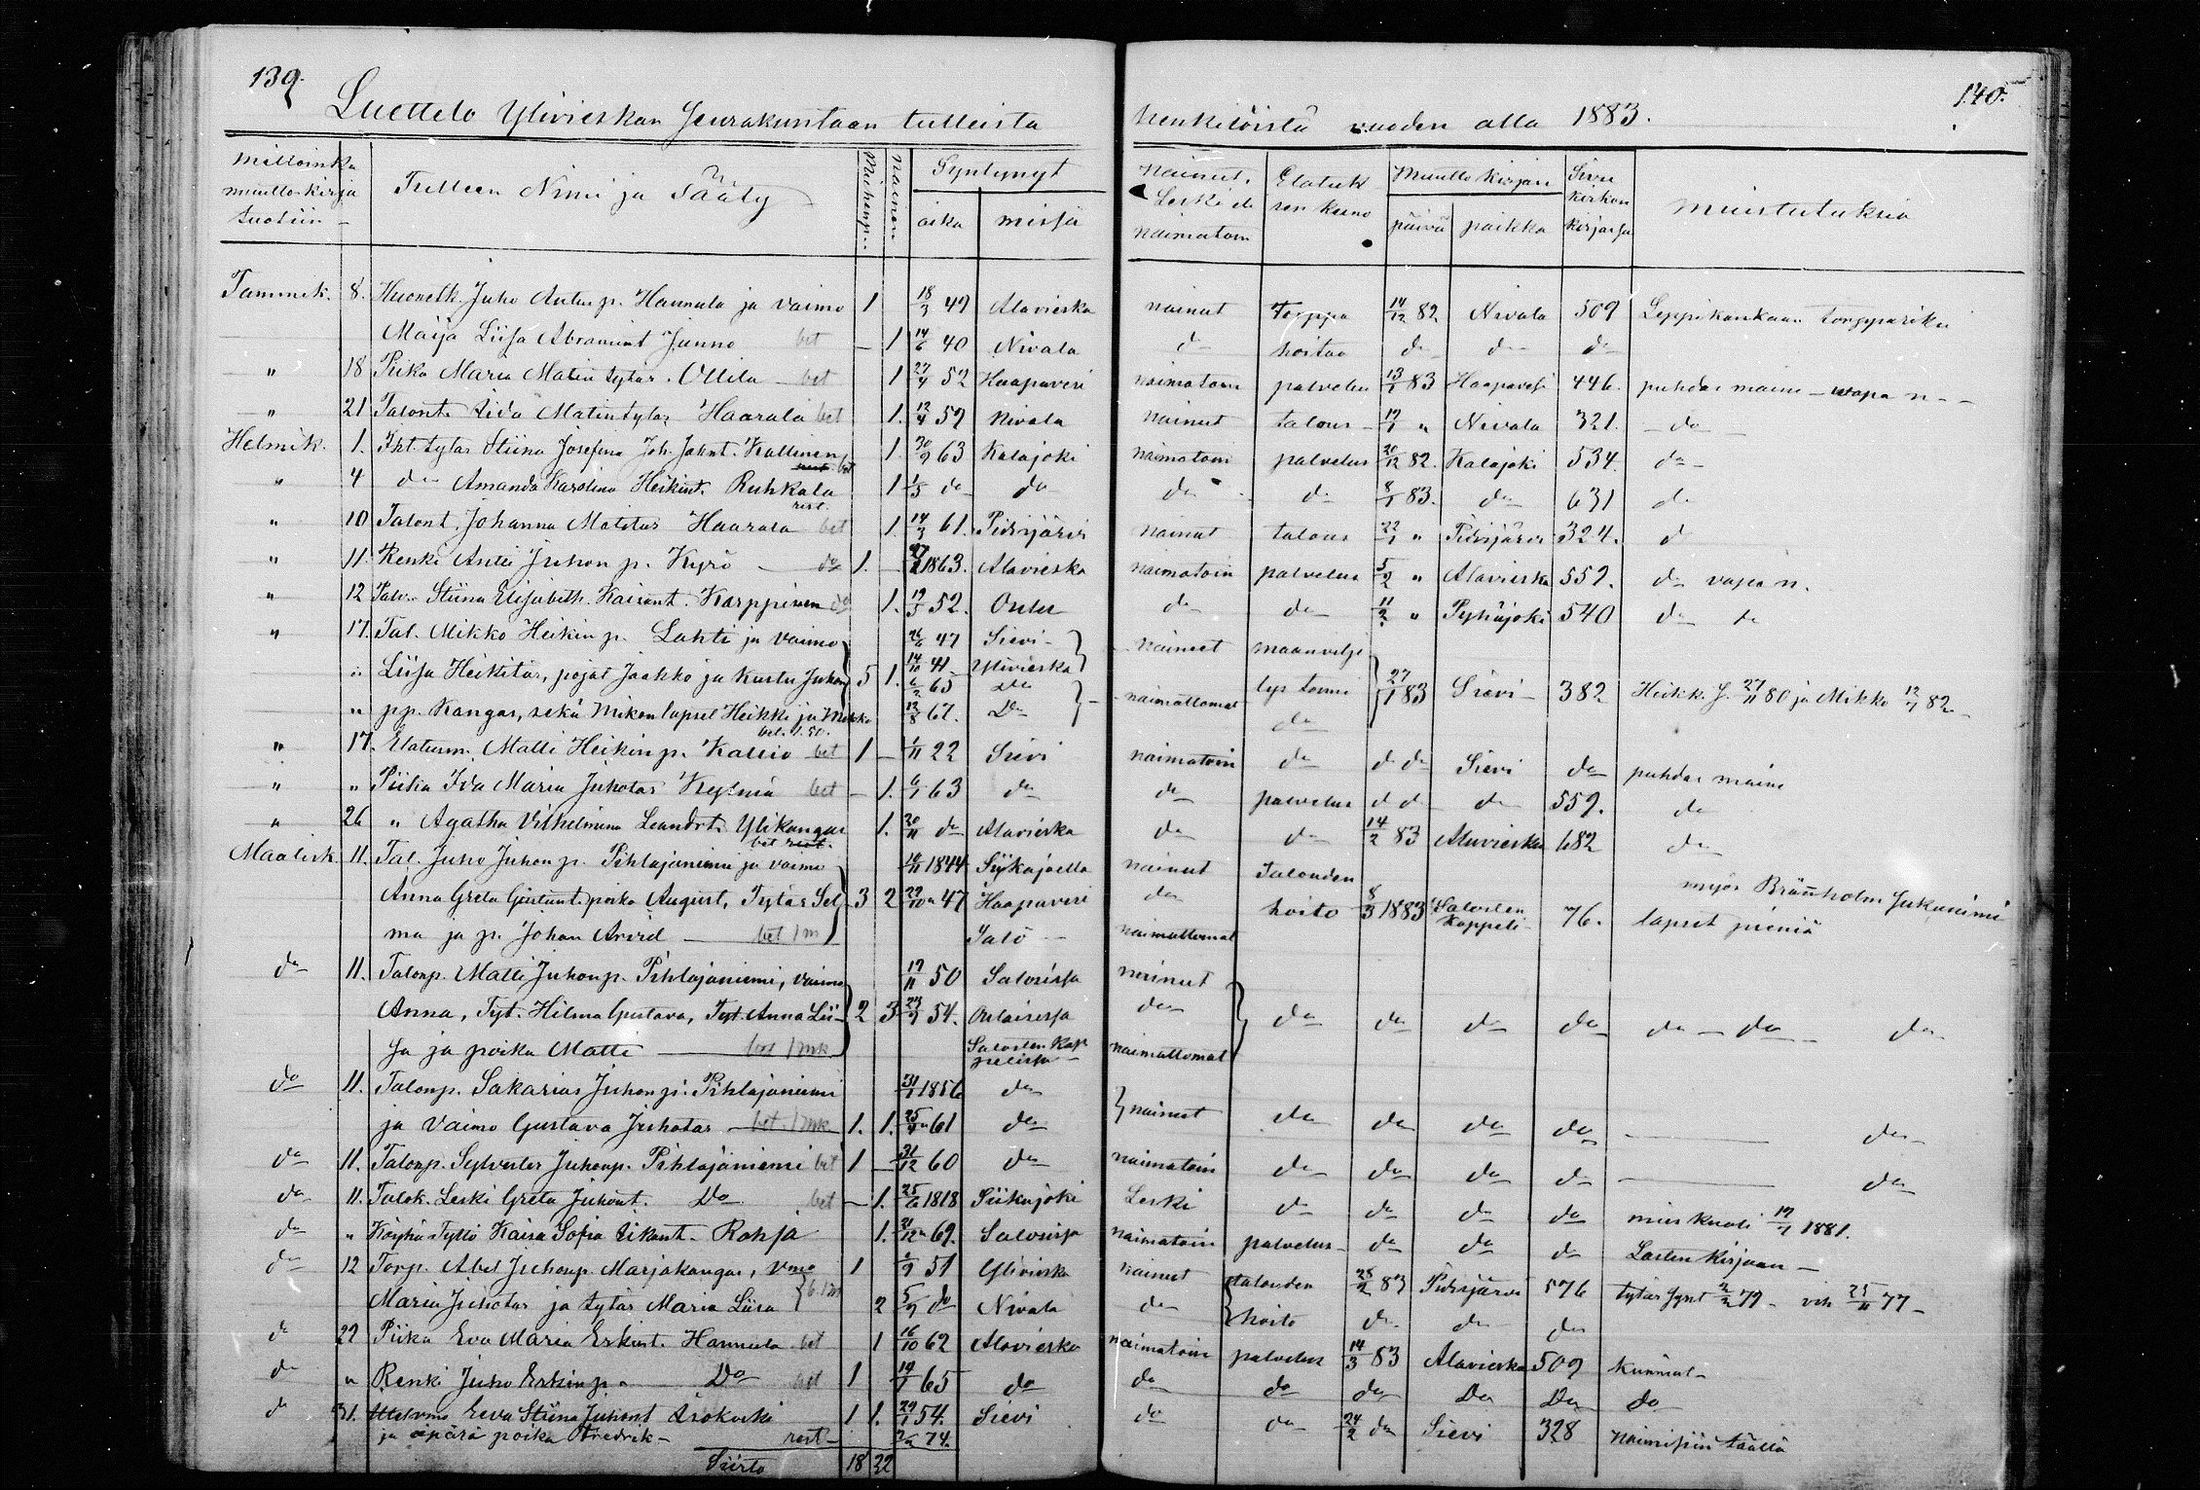 139.
140.
Luettelo Ylivieskan Seurakuntaan tulleista henkilöistä vuoden alla 1883.
Milloinka muuttokirja tuotiin Tulleen Nimi ja Sääty Miehenp. Nainen Syntynyt aika missä Naimut, Leski eli naimatoin Elatuk sen keino Muutto kirjan päivä paikka Sivu kirkon kirjassa Muistutuksia
Tammik. 8. Juho Antinp. Hannula ja vaimo 1 18/3 49 Alavieska nainut Torppa 14/12 82 Nivala 509 Leppikankaan torppariksi
Maija Liisa Abramint Junno bet – 1 14/6 40 Nivala do hoitaa do do do
" 18 Piika Maria Matintytär Ollila bet 1 27/4 52 Haapavesi naimatoin palvelus 13/1 83 Haapavesi 446. puhdas maine – vapa n –
" 21 Talont. Iida Matintytär Haarala bet 1. 12/4 59 Nivala nainut talous 19/1 " Nivala 321. – do –
Helmik. 1. Stiina Josefina Joh. Kallinen bet 1. 30/9 63 Kalajoki naimatoin palvelus 20/12 82. Kalajoki 534. do
" 4 do Amanda Karolina Heikint. Ruhkala rest. 1 1/5 do do do do 8/1 83. do 631 do
" 10 Talont. Johanna Matitär Haarala bet 1. 14/3 61. Pidisjärvi nainut talous 22/1 " Pidisjärvi 324. d
" 11. Renki Antti Juhon p. Kyrö do 1. – 1863. Alavieska naimatoin palvelus 5/2 " Alavieska 559. do vapa n.
" 12 Stiina Elisabeth Karppinen do 1. 19/5 52. Oulu do do 11/2 " Pyhäjoki 540 do do
" 17. Tal. Mikko Heikin p. Lahti ja vaimo 47 Sievi naineet maanvilje
" Liisa Heikitär, pojat Jaakko ja Kustu Juhon 5 1. 14/10 41 Ylivieska
6/2 65 Do lys toimi 27/1 83 Sievi 382 Heikk. S. 27/11 80 ja Mikko 12/7 82
" pp. Kangas, sekä Mikon lapset Heikki ja Mikko 12/8 67. Do naimattomat do
bet. 1.50.
" 17. Elatusm. Matti Heikinp. Kallio bet 1 – 1/11 22 Sievi naimatoin do d do Sievi do puhdas maine
" " Piika Ida Maria Juhotar Kylmä bet – 1. 6/1 63 do do palvelus d d do 559. do
" 26 " Agatha Vilhelmina Leandrt. Ylikangas 1. 20/11 do Alavieska do do 14/2 83 Alavieska 682 do
bet rest.
Maalisk. 11. Tal. Juho Juhon p. Pihlajaniemi ja vaimo 1844 Siikajoella nainut Talouden
Anna Greta poika August, Tytär Sel 3 2 22/10 47 Haapavesi do hoito 8/3 1883 Salosten Kappeli 76. lapset pieniä
myös Brännholm Sukunimi
ma ja p. Johan Arvid – bet 1m Salo naimattomat
do 11. Talonp. Matti Juhonp. Pihlajaniemi, vaimo 19/11 50 Saloisissa nainut
Anna, Tyt. Hilma Gustava, Tyt. Anna Lii- 2 3 54. Oulaisissa do do do do do do – do – do
sa ja poika Matti – bet 1mk Salosten Kap pelissa naimattomat
do 11. Talonp. Sakarias Juhonp. Pihlajaniemi 31/1 1856 do
ja Vaimo Gustava Juhotar bet. 1mk 1. 1. 25/4 61 do nainut do do do do – do
do 11. Talonp. Sylvester Juhonp. Pihlajaniemi bet 1 – 31/12 60 do naimatoin do do do do – do
do 11. Leski Greta Juhont. Do bet – 1. 25/6 1818 Siikajoki Leski do do do do mies kuoli 17/7 1881.
do " Köyhä Tyttö Kaisa Sofia Rohja 1. 31/12 69. Saloisissa naimatoin palvelus do do do Lasten kirjaan –
do 12 Torp. Abel Juhonp. Marjakangas, Vmo 1 1/9 51 Ylivieska nainut talouden 28/2 83 Pidisjärvi 576 tytär synt 2/2 79 – vih 25/11 77 –
Maria Juhotar ja tytär Maria Liisa b. 1m 2 5/9 do Nivala do hoito do do do
d 22 Piika Eva Maria Erkint. Hannula bet 1 16/10 62 Alavieska naimatoin palvelus 14/3 83 Alavieska 509 Kummat –
do " Renki Juho Erkinp. Do bet 1 19/1 65 do do do do Do Do Do
d 31. Eeva Stiina Juhont 1 1. 29/1 54. Sievi do do 24/2 do Sievi 328 naimisiin täällä
ja äpärä poika Fredrik – rest – 74.
Siirto 18 22